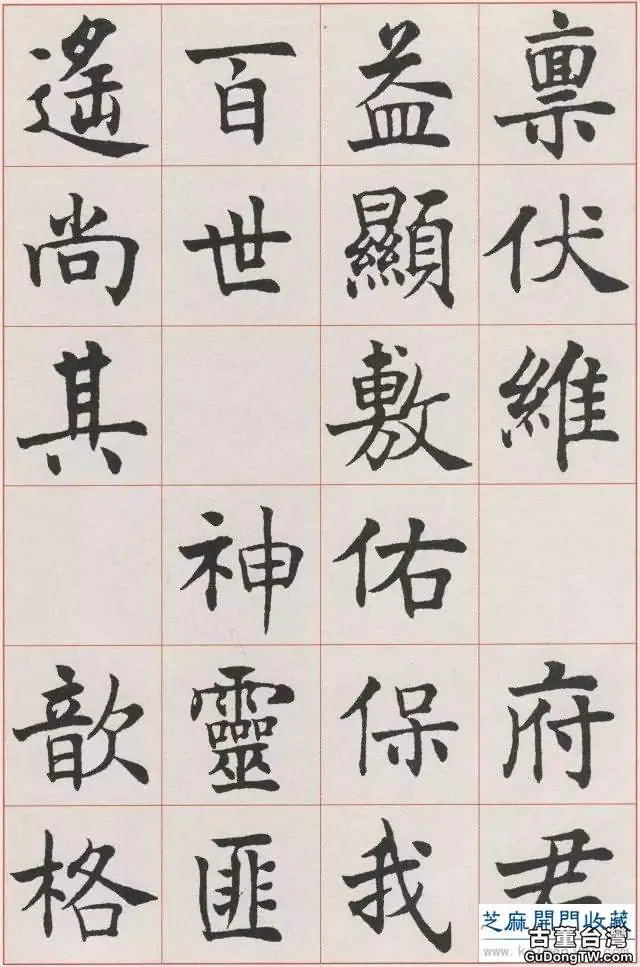 禀伏維府君
益顯敷佑保我
百世神靈匪
遙尚其歆格
芝麻開門收藏
古董台灣
GuDongTW.com